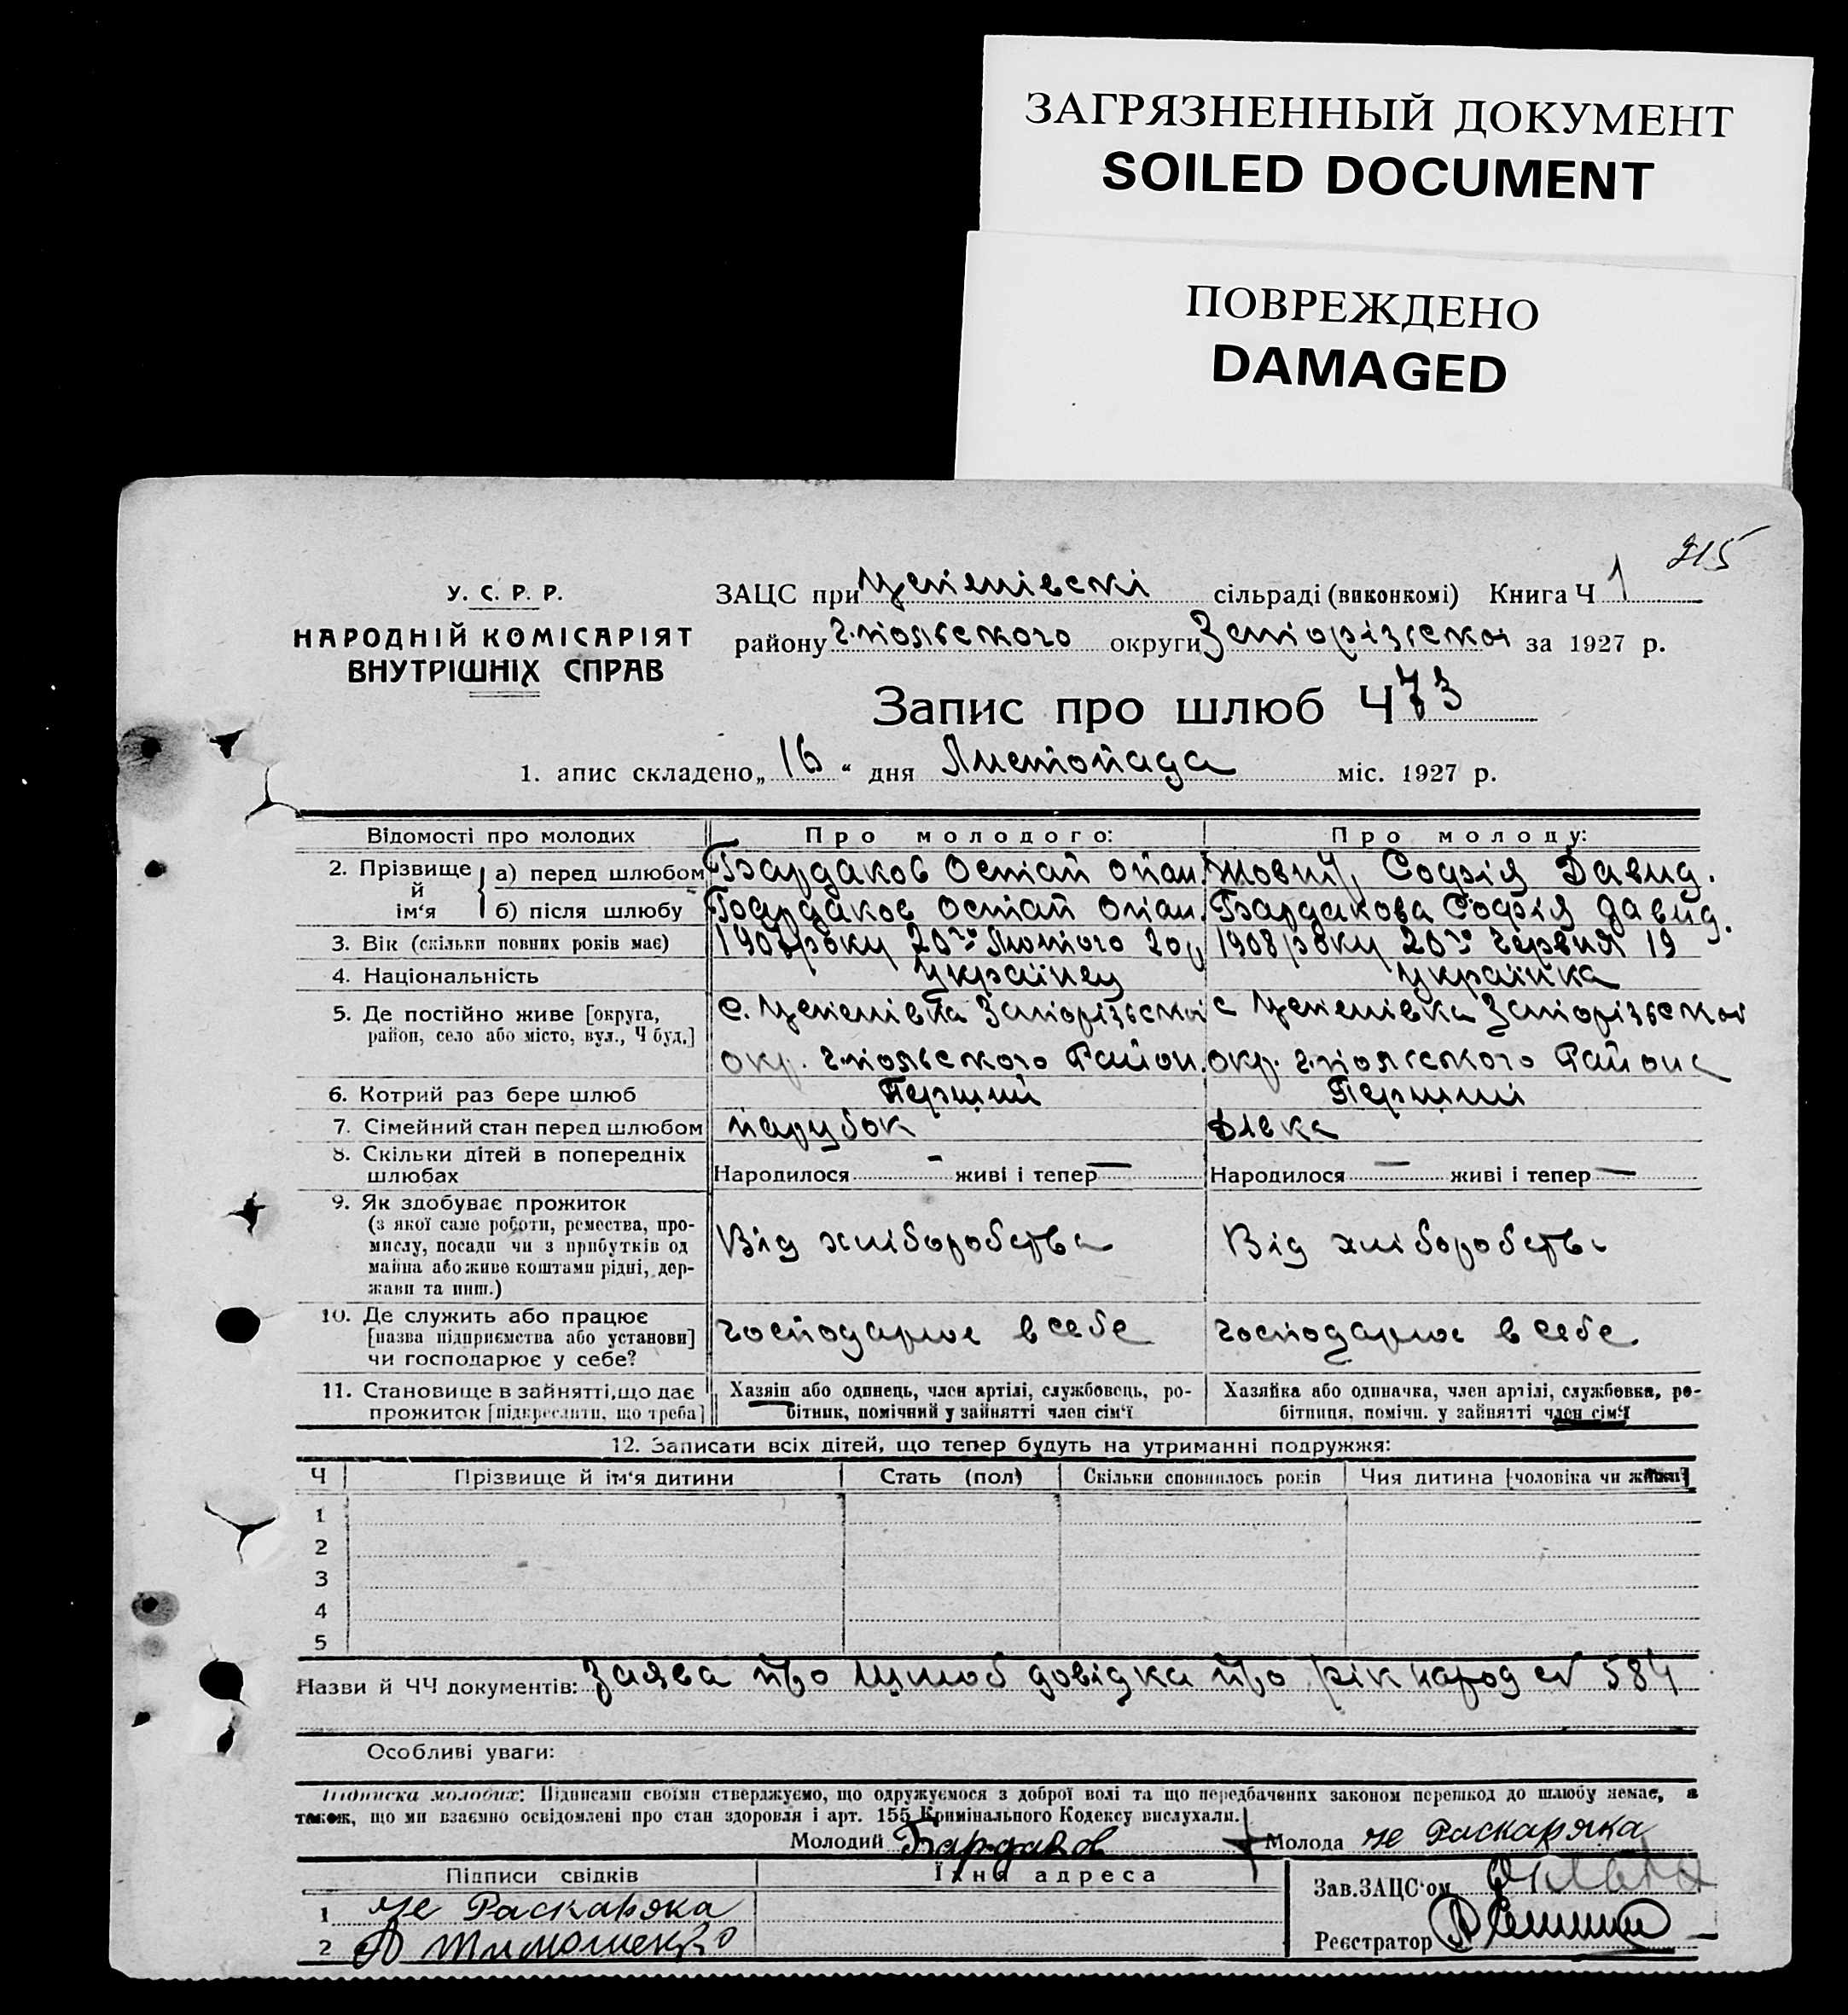 ЗАГРЯЗНЕННЫЙ ДОКУМЕНТ
SOILED DOCUMENT
ПОВРЕЖДЕНО
DAMAGED
215
У. С. Р. Р.
НАРОДНІЙ КОМІСАРІЯТ
ВНУТРІШНІХ СПРАВ
ЗАЦС при сільраді (виконкомі) Книга Ч 1
району округи Запорізської за 1927 р.
Запис про шлюб Ч 73
1. апис складено „ 16 “ дня Листопада міс. 1927 р.
Відомості про молодих Про молодого: Про молоду:
2. Прізвище й ім‘я
а) перед шлюбом Бардаков Остап Опан. Софія Давид.
б) після шлюбу Бардаков Остап Опан. Бардакова Софія Давид.
3. Вік (скільки повних років має) 1907 року 20го Лютого 20 р 1908 року 20го Червня 19
4. Національність українец українка
5. Де постійно живе [округа, район, село або місто, вул., Ч буд.]
с. Запорізської с Запорізської
окр. Район. окр. Района
6. Котрий раз бере шлюб Перший Перший
7. Сімейний стан перед шлюбом парубок дівка
8. Скільки дітей в попередніх шлюбах Народилося — живі і тепер — Народилося — живі і тепер —
9. Як здобуває прожиток
(з якої саме роботи, ремества, промислу, посади чи з прибутків од майна або живе коштами рідні, держави та инш.)
Від хліборобства Від хліборобства
10. Де служить або працює
[назва підприємства або установи]
чи господарює у себе?
господарює в себе господарює в себе
11. Становище в зайнятті, що дає прожиток [підкреслити, що треба]
Хазяїн або одинець, член артілі, службовець, робітник, помічний у зайнятті член сім‘ї
Хазяйка або одиначка, член артілі, службовка, робітниця, помічн. у зайнятті член сім‘ї
12. Записати всіх дітей, що тепер будуть на утриманні подружжя:
Ч Прізвище й ім‘я дитини Стать (пол) Скільки сповнилось років Чия дитина [чоловіка чи жінки]
1
2
3
4
5
Назви й ЧЧ документів: Заява про шлюб довідка про рік народ № 584
Особливі уваги:
Підписка молодих: Підписами своїми стверджуємо, що одружуємося з доброї волі та що передбачених законом перешкод до шлюбу немає, а
також, що ми взаємно освідомлені про стан здоровля і арт. 155 Кримінального Кодексу вислухали.
Молодий Бардаков Молода Раскаряка
Підписи свідків Їхня адреса Зав.ЗАЦС‘ом
1 Раскаряка
2 Реєстратор